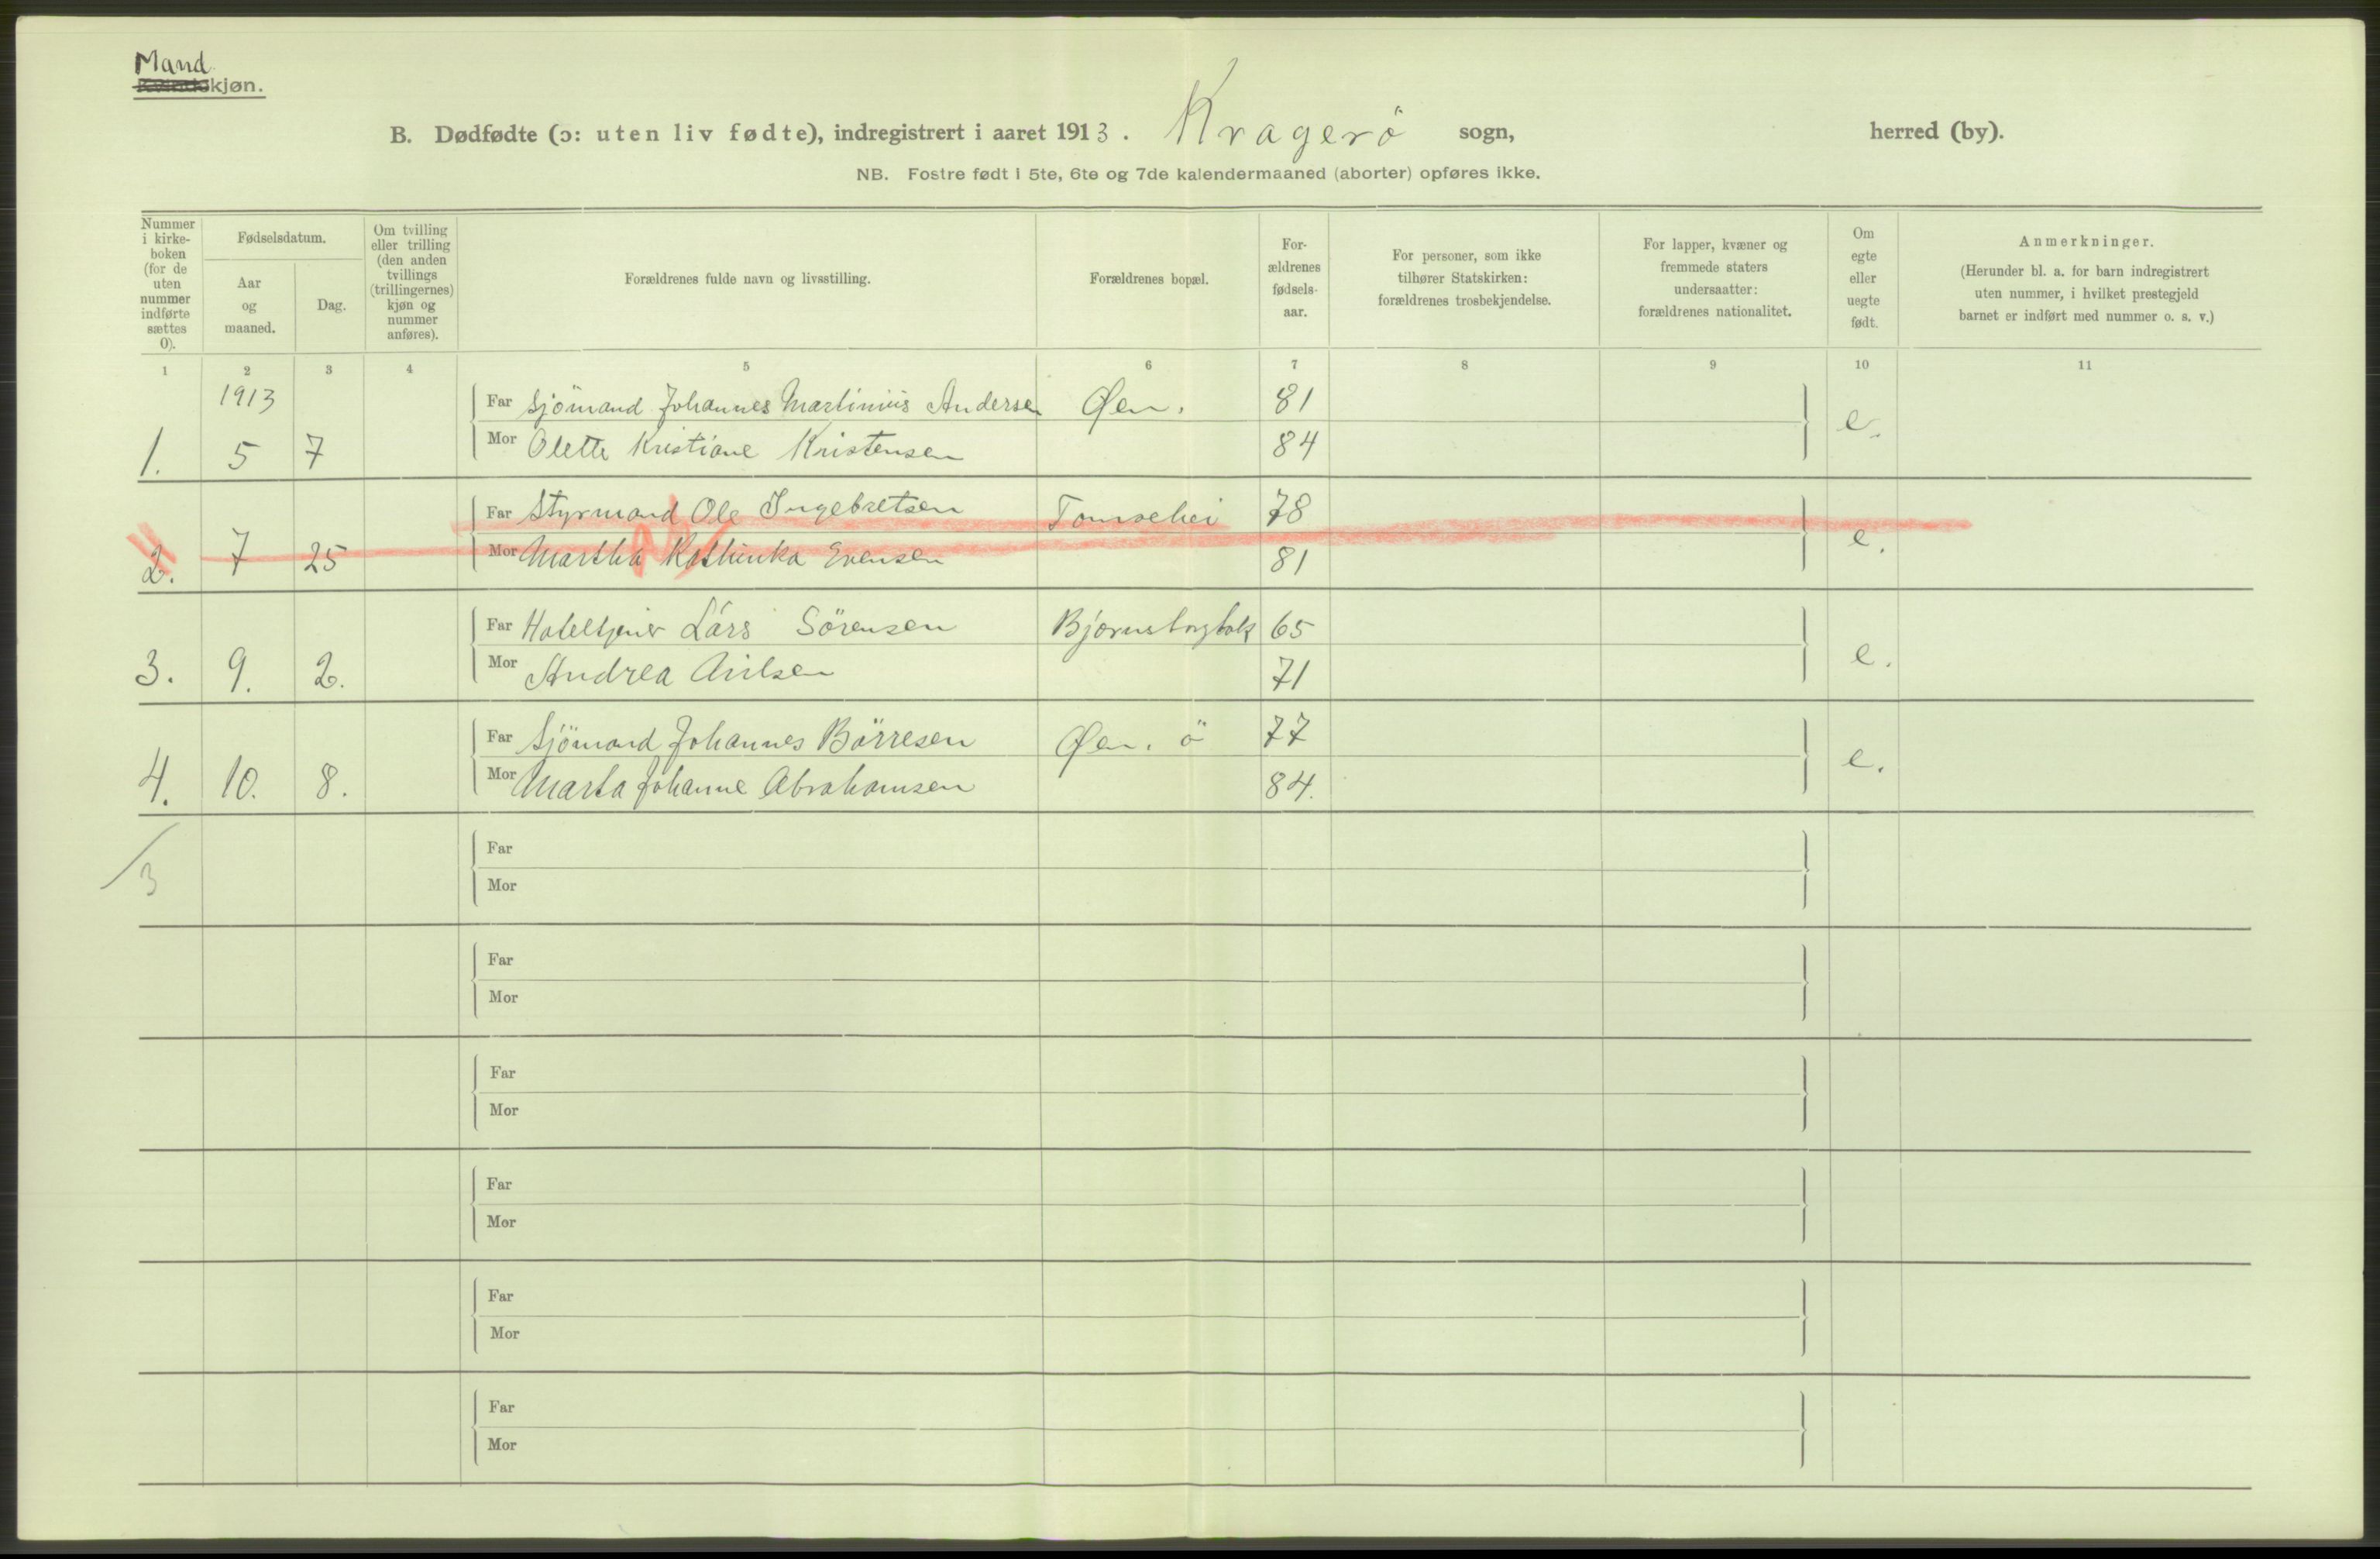 Mand
Kvindekjøn.
B. Dødfødte (ɔ: uten liv fødte), indregistrert i aaret 1913. Kragerö sogn, herred (by).
NB. Fostre født i 5te, 6te og 7de kalendermaaned (aborter) opføres ikke.
Nummer i kirke-boken (for de uten nummer indførte sættes 0).
Fødselsdatum.
Aar og maaned.
Dag.
Om tvilling eller trilling (den anden tvillings (trillingernes) kjøn og nummer anføres).
Forældrenes fulde navn og livsstilling.
Forældrenes bopæl.
For-ældrenes fødsels-aar.
For personer, som ikke tilhører Statskirken: forældrenes trosbekjendelse.
For lapper, kvæner og fremmede staters undersaatter: forældrenes nationalitet.
Om egte eller uegte født.
Anmerkninger.
(Herunder bl. a. for barn indregistrert uten nummer, i hvilket prestegjeld barnet er indført med nummer o. s. v.)
1 2 3 4 5 6 7 8 9 10 11
1913
Far Sjömand Johannes Martinius Andersen Øen. 81
1. 5 7 Mor Olette Kristiane Kristensen 84 e.
Far Styrmand Ole Ingebretsen 78
2. 7 25 Mor Martha Kathinka Evensen 81 e.
Far Hoteltjener Lars Sörensen 65
3. 9. 2. Mor Andrea 71 e.
Far Sjömand Johannes Börresen Øen. ö 77
4. 10. 8. Mor Marta Johanne Abrahamsen 84. e.
Far
3
Mor
Far
Mor
Far
Mor
Far
Mor
Far
Mor
Far
Mor